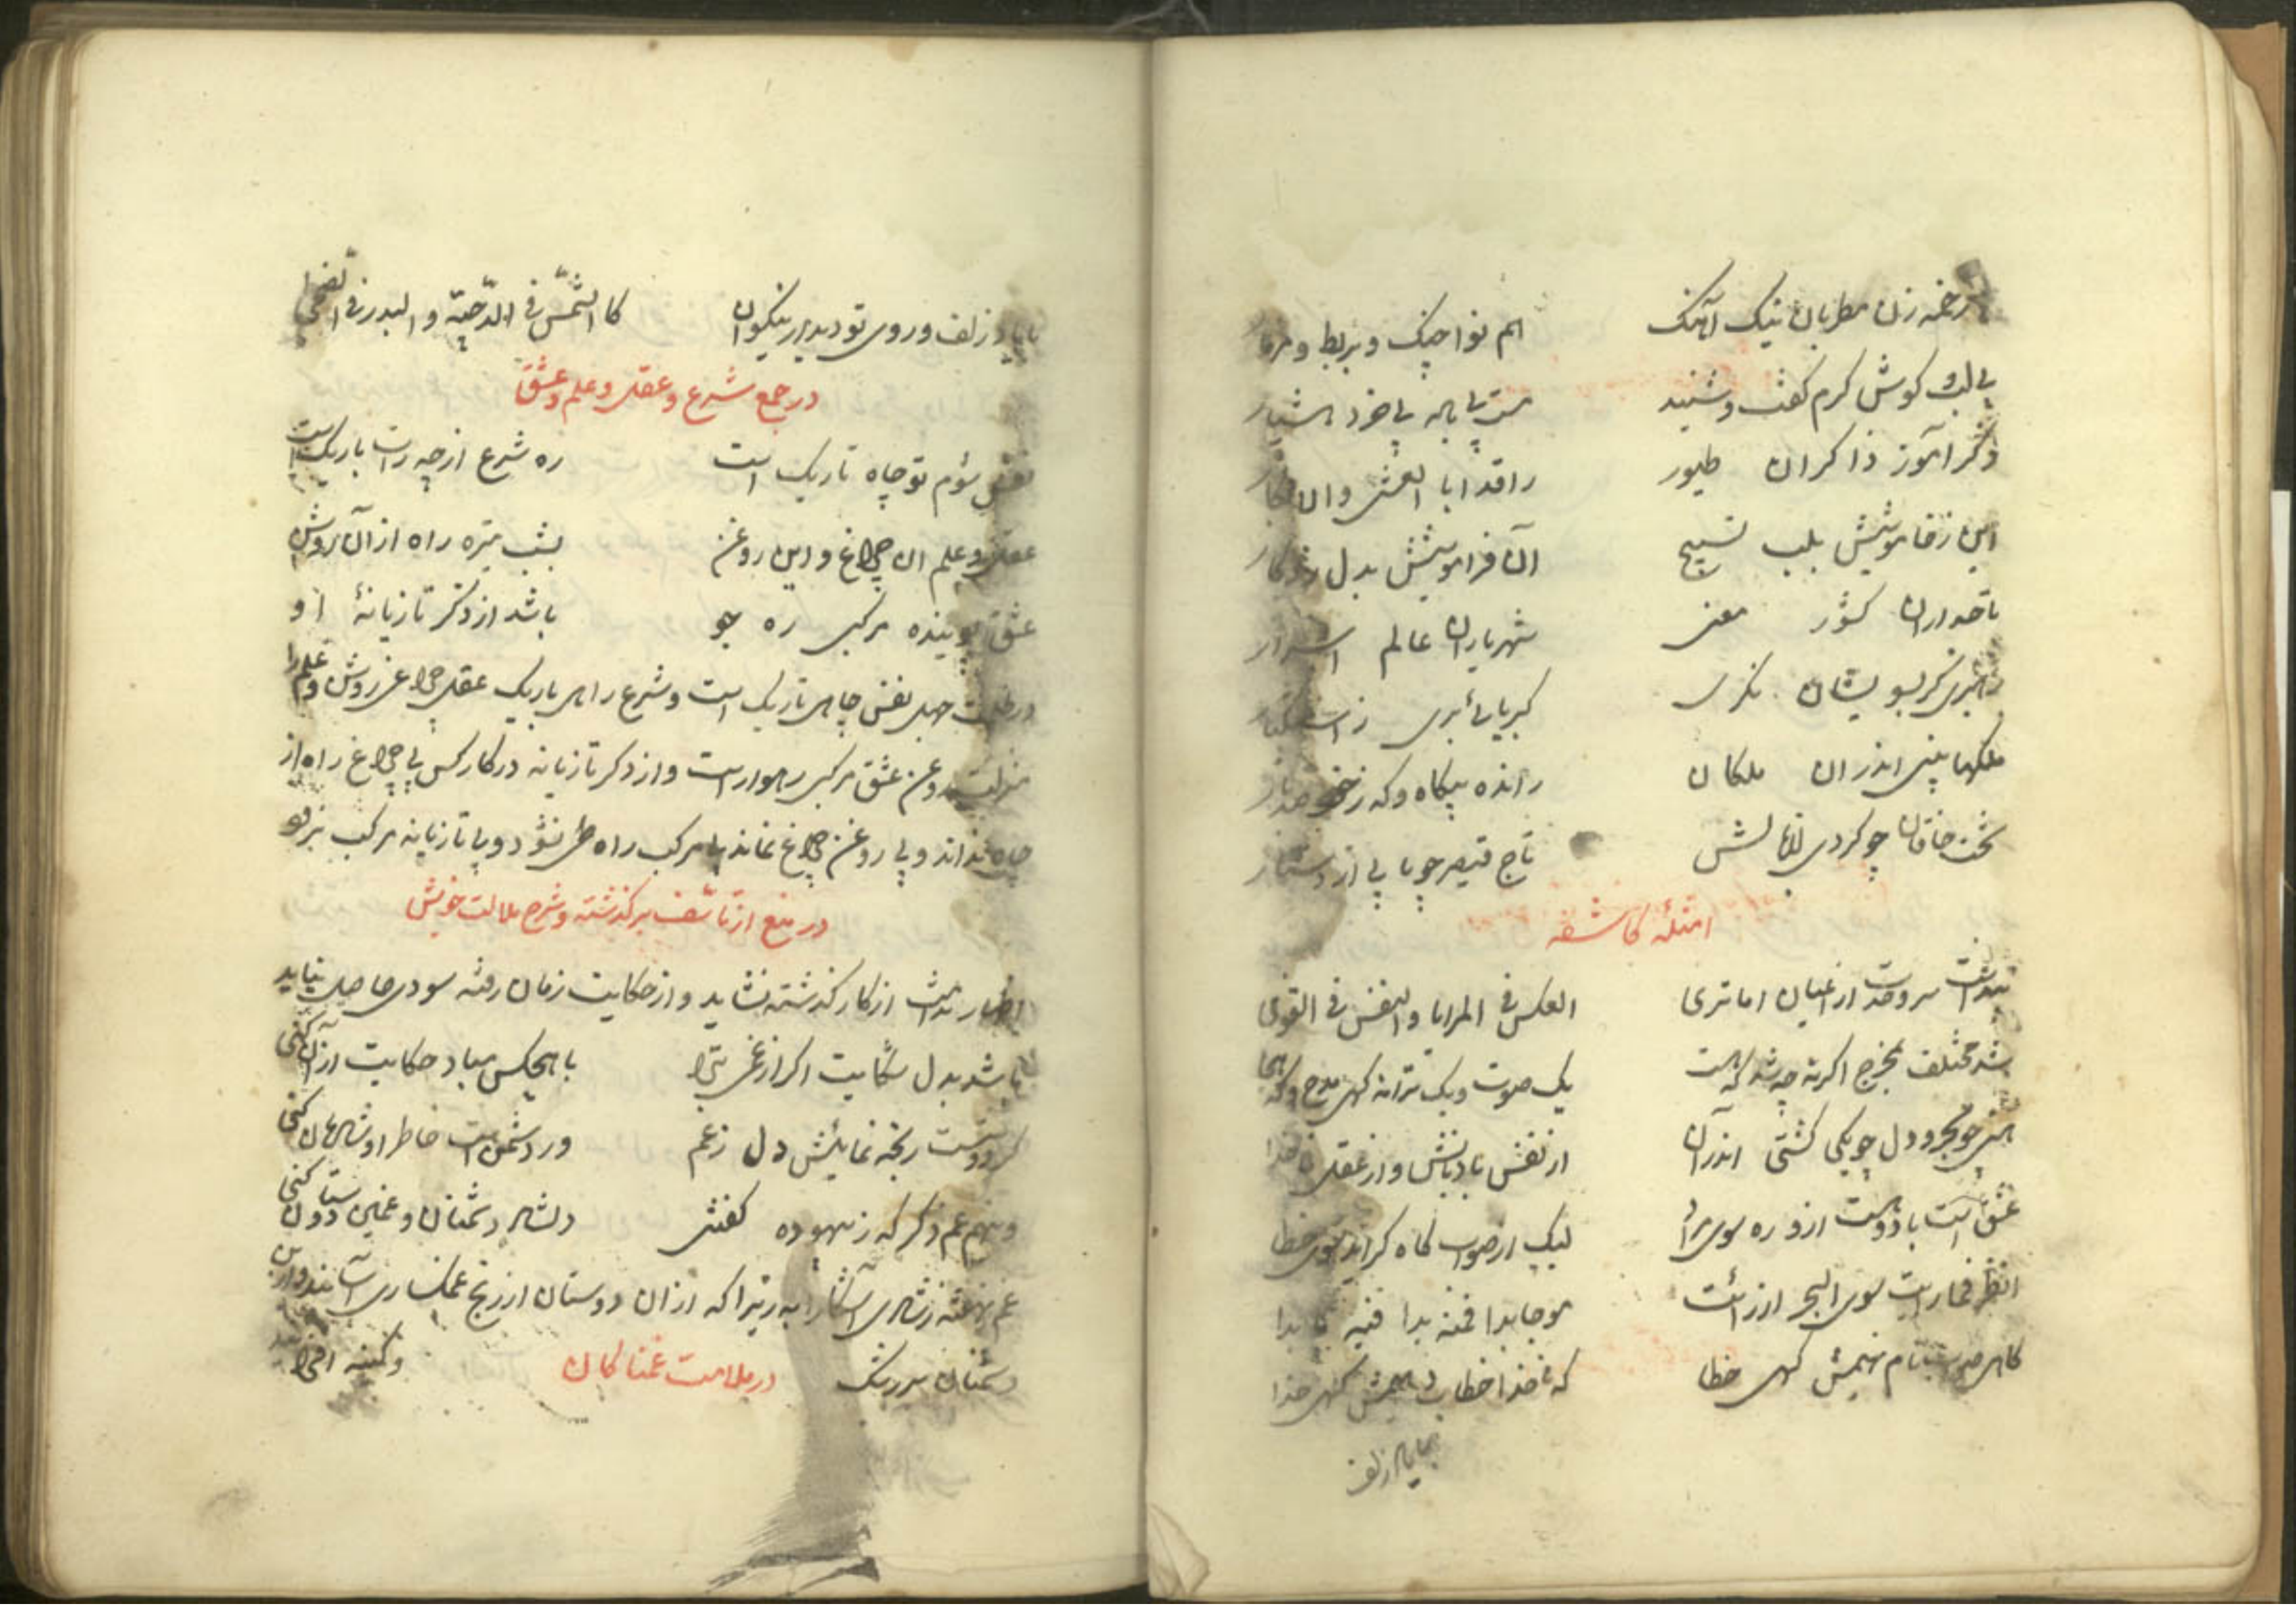 زخمه زن مطربان نیک آهنگ هم نوا چنگ و بربط و مزمار
بی لب و کوش کرم کفت و شنید مست بی باله بی خرد هشیار
ذکر آموز ذاکران طیور راقدا با العشی و الابکار
این ز خاموشیش بلب تسبیح آن فراموشیش بدل
تاجداران کشور معنی شهریاران عالم اسرار
بسویشان نکری کبریائی بری ز استکبار
ملکها بینی اندران ملکان رانده بیکاه و که ز خود
تخت خاقان چو کردی تاج قیصر چو پا بی از دستار
امثلهٔ کاشفه
سر وحدت از اعیان اما تری العکس فی المرایا و النفس فی القوی
شد مختلف بمخرج اکر نه چه شد که هست یک صوت و یک ترانه کهی مدح و که هجا
هستی چو بحر و دل چو یکی کشتی اندر آن از نفس بادبانش و از عقل ناخدا
عشق است باد و هست ازو ره سوی مراد لیک از صواب کاه کراید سوی خطا
انظر فما رایت سوی البحر ان رایت موجا بدا فمنه بدا فیه
کاهی صواب نام نهیمش کهی خطا که ناخدا خطاب دهیمش کهی خدا
زلف
زلف و روی تو دیدیم نیکوان کا الشمس فی الدجیة و البدر فی الضحی
در جمع شرع و عقل و علم و عشق
نفس شوم تو چاه تاریک است ره شرع ار چه راست باریک است
عقل و علم آن چراغ و این روغن بشب تیره راه از آن روشن
عشق پوینده مرکبی ره جو باشد از ذکر تازیانهٔ او
در ظلمت جهل نفس چاهی تاریک است و شرع راهی باریک عقل چراغی روشن و علم را
منزلت روغن عشق مرکبی رهوار است و از ذکر تازیانه در کار کس بی چراغ راه از
چاه نداند و بی روغن چراغ نماند بی مرکب راه طی نشود و بی تازیانه مرکب نرود
در منع از تاسف بر کذشته و شرح ملالت خویش
اظهار ندامت از کار کذشته نشاید و از حکایت زمان رفته سودی حاصل نیاید
باشد بدل شکایت اکر از غمی ترا با هیچکس مباد حکایت از آن کنی
کر دوست رنجه نمائیش دل ز غم ور دشمن است خاطر او شادمان کنی
و نهم غم دکر که ز بیهوده کفتنش دلشاد دشمنان و غمین دوستان کنی
غم نهفته ز شادی آشکارا به زیرا که از آن دوستان از رنج غمکساری آسایند و ازین
دشمنان بر رشک و کینه افزایند
در ملامت غمناکان